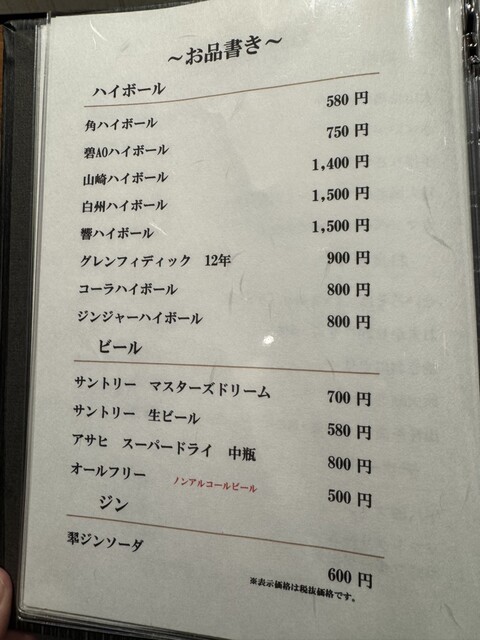 ～お品書き～
ハイボール
角ハイボール 580 円
碧AOハイボール 750 円
山崎ハイボール 1,400 円
白州ハイボール 1,500 円
響ハイボール 1,500 円
グレンフィディック 12年 900 円
コーラハイボール 800 円
ジンジャーハイボール 800 円
ビール
サントリー マスターズドリーム 700 円
サントリー 生ビール 580 円
アサヒ スーパードライ 中瓶 800 円
オールフリー ノンアルコールビール 500 円
ジン
翠ジンソーダ 600 円
※表示価格は税抜価格です。